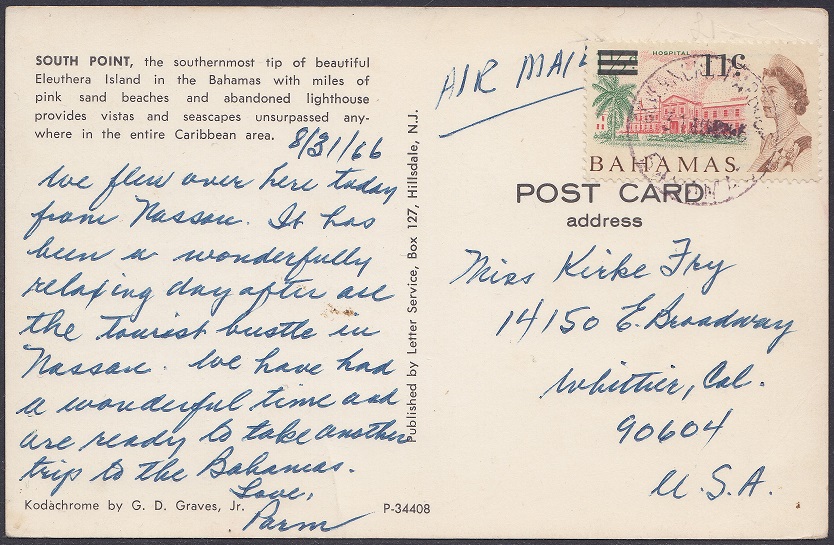 SOUTH POINT, the southernmost tip of beautiful
Eleuthera Island in the Bahamas with miles of
pink sand beaches and abandoned lighthouse
provides vistas and seascapes unsurpassed any-
where in the entire Caribbean area.
8/31/66
We flew over here today
from Nassau. It has
been a wonderfully
relaxing day after all
the tourist bustle in
Nassau. We have had
a wonderful time and
are ready to take another
trip to the Bahamas.
Love,
Parm
Kodachrome by G. D. Graves, Jr.
P-34408
Published by Letter Service, Box 127, Hillsdale, N.J.
AIR MAIL
HOSPITAL
11c
BAHAMAS
POST CARD
address
Miss Kirke Fry
14150 E. Broadway
Whittier, Cal.
90604
U.S.A.